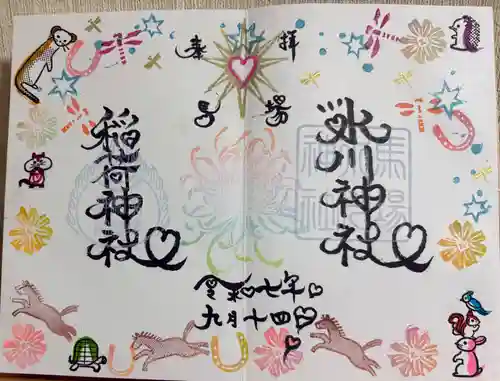 奉拝
馬場
氷川神社
稲荷神社
令和七年
九月十四日